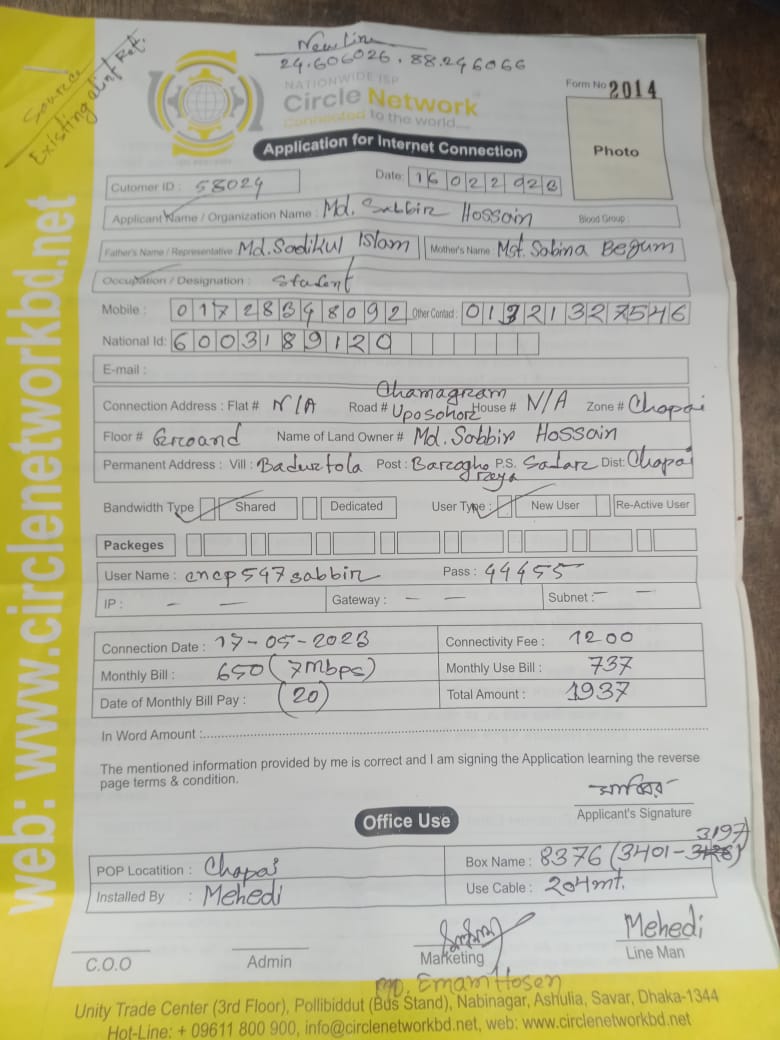 New Line
24.606026, 88.246066
Source
Existing client Ref.
NATIONWIDE ISP
Circle Network
Connected to the world....
Form No 2014
Photo
Application for Internet Connection
Cutomer ID : 58024
Date: 16022023
Applicant Name / Organization Name : Md. Sabbir Hossain Blood Group :
Father's Name / Representative Md. Sadikul Islam Mother's Name Mst. Sabina Begum
Occupation / Designation : Student
Mobile : 01728348092 Other Contact : 01321327546
National Id: 6003189120
E-mail :
Connection Address : Flat # N/A Road # Chamagram Uposohor House # N/A Zone # Chapai
Floor # Groand Name of Land Owner # Md. Sabbir Hossain
Permanent Address : Vill : Badurtola Post : Barogho reya P.S. Sadar Dist: Chapai
Bandwidth Type Shared Dedicated User Type : New User Re-Active User
Packeges
User Name : cncp547sabbir Pass : 44455
IP : - - Gateway : - - Subnet : - -
Connection Date : 17-05-2023 Connectivity Fee : 1200
Monthly Bill : 650 (7mbps) Monthly Use Bill : 737
Date of Monthly Bill Pay : (20) Total Amount : 1937
In Word Amount :
The mentioned information provided by me is correct and I am signing the Application learning the reverse
page terms & condition.
সাব্বির
Applicant's Signature
Office Use
POP Locatition : Chapai Box Name : 8376 (3401 - 3197)
Installed By : Mehedi Use Cable : 204mt.
C.O.O Admin Marketing Mehedi Line Man
MD. Emam Hosen
Unity Trade Center (3rd Floor), Pollibiddut (Bus Stand), Nabinagar, Ashulia, Savar, Dhaka-1344
Hot-Line: + 09611 800 900, info@circlenetworkbd.net, web: www.circlenetworkbd.net
web: www.circlenetworkbd.net